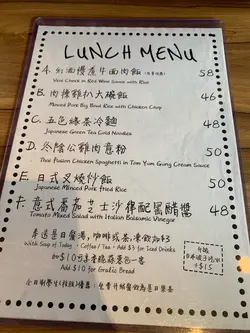 LUNCH MENU
A. 紅酒慢煮牛面肉飯 58
Veal Cheek in Red Wine Sauce with Rice
B. 肉燥雞扒大碗飯 46
Minced Pork Big Bowl Rice with Chicken Chop
C. 五色綠茶冷麵 48
Japanese Green Tea Cold Noodles
D. 冬陰公雞肉意粉 50
Thai Fusion Chicken Spaghetti in Tom Yum Gung Cream Sauce
E. 日式叉燒炒飯 50
Japanese Minced Pork Fried Rice
F. 意式蕃茄芝士沙律配黑醋醬 48
Tomato Mixed Salad with Italian Balsamic Vinegar
奉送是日餐湯, 咖啡或茶, 凍飲加$3
With Soup of Today + Coffee / Tea + Add $3 for Iced Drinks
加$10可享香脆蒜蓉包一客
Add $10 for Garlic Bread
$15